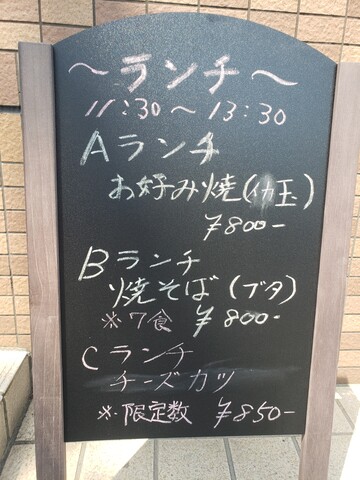 ～ランチ～
11:30～13:30
Aランチ
お好み焼(イカ玉)
¥800-
Bランチ
焼そば(ブタ)
※7食 ¥800-
Cランチ
チーズカツ
※限定数 ¥850-